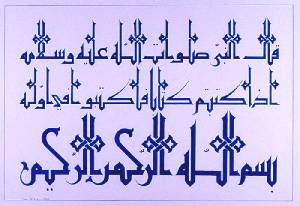 قال النبي صلوات الله عليه وسلامه
اذا كتبتم كتابا فاكتبوا في اوله
بسم الله الرحمن الرحيم